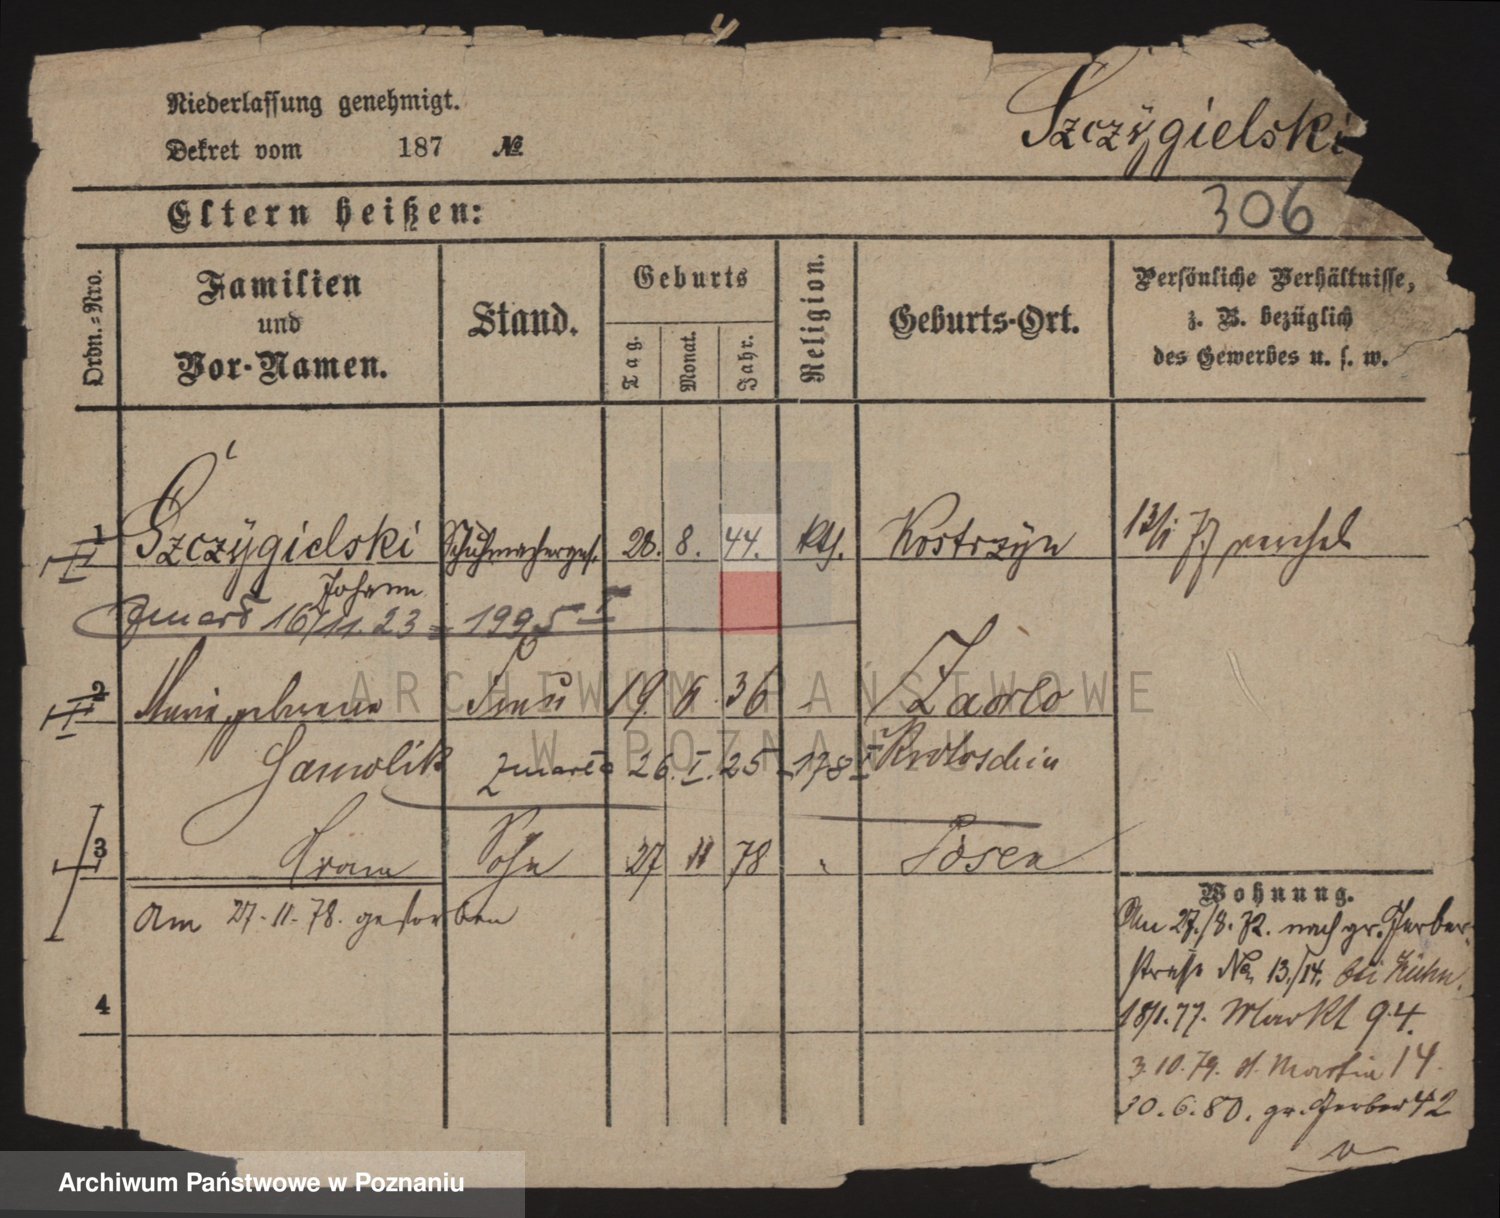 Niederlassung genehmigt.
Szczÿgielski
Dekret vom 187 №
306
Eltern heißen:
Ordn.-Nro.
Familien und Vor-Namen.
Stand.
Geburts
Tag.
Monat.
Jahr.
Religion.
Geburts-Ort.
Persönliche Verhältnisse, z. B. bezüglich des Gewerbes u. s. w.
1 Szczÿgielski Schuhmacherges. 28. 8. 44. kth. Kostrzyn 13/1 77
Johann
zmarł 16/11.23 = 1995 I
ARCHIWUM PAŃSTWOWE
W POZNANIU
2 Marie geborene Frau 19. 6 36 Zaorlo
Gawolik zmarła 26.I.25 - 178 I Krotoschin
3 Sohn 27 11 78 Posen
am 27.11.78. gestorben
4
Wohnung.
Am 27./8.72. nach gr. Gerber-
straße No 13./14. bei Kühn.
18/1.77. Markt 94.
3.10.79. St. Martin 14.
30.6.80. gr. Gerber 42
Archiwum Państwowe w Poznaniu